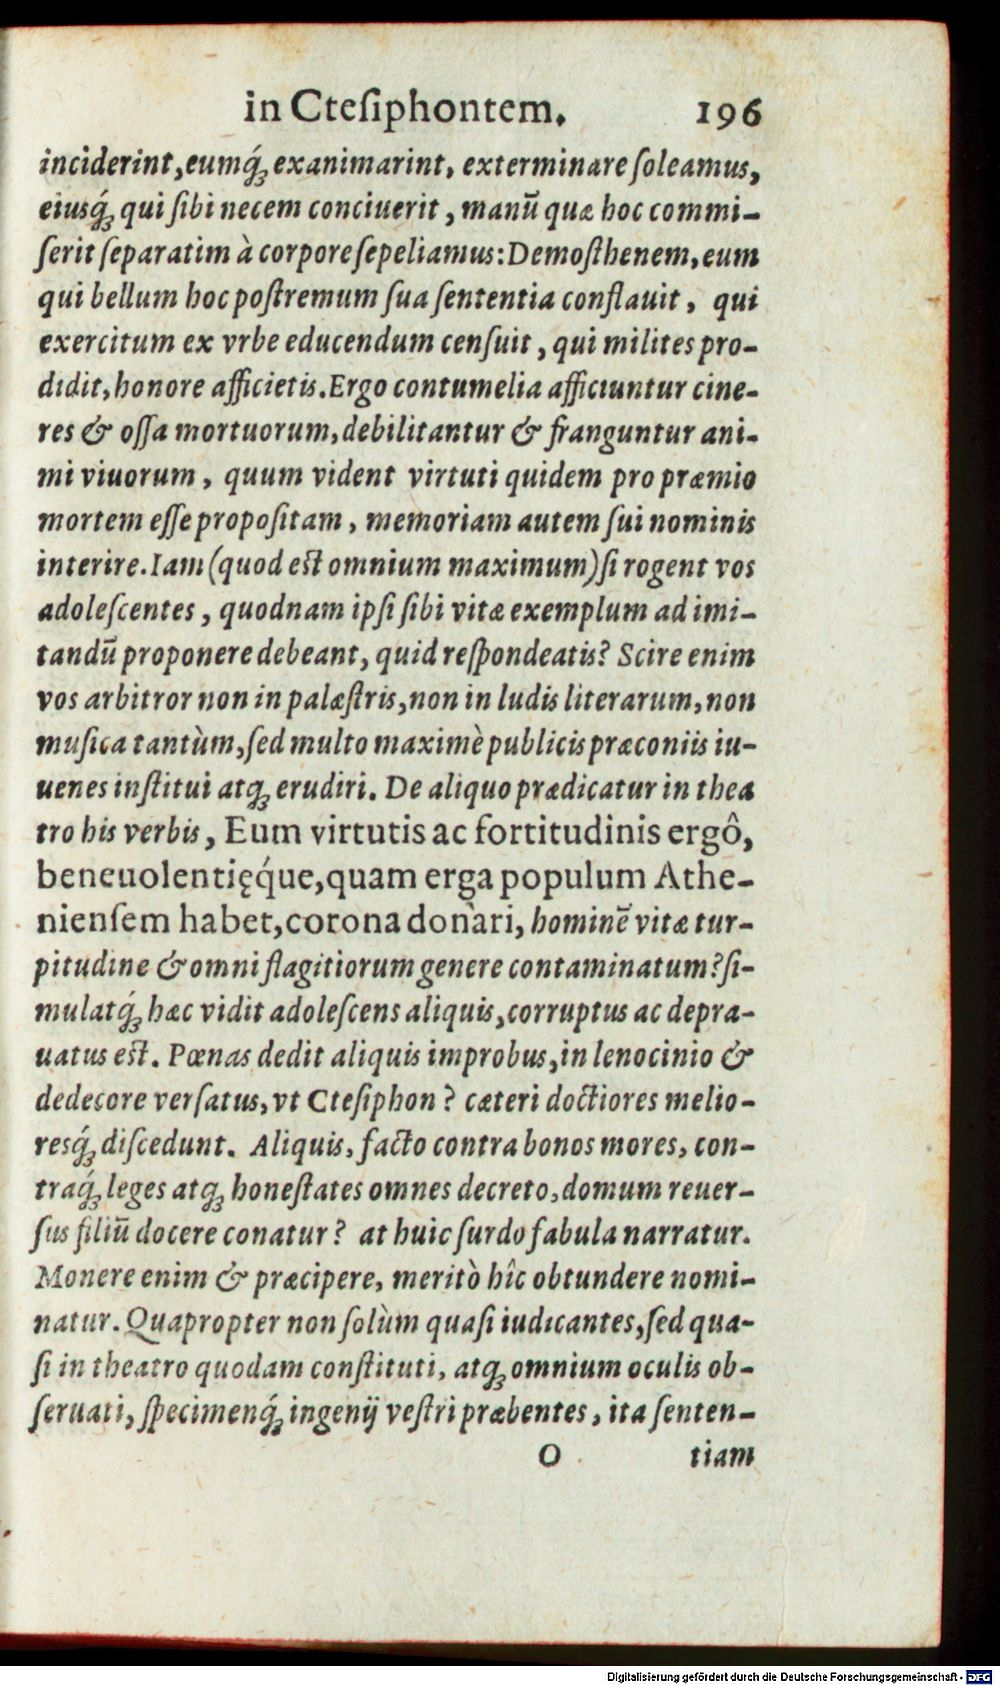 in Cteſiphontem. 196
inciderint, eumq́ꝫ exanimarint, exterminare ſoleamus,
eiusq́ꝫ qui ſibi necem conciuerit, manū quæ hoc commi-
ſerit ſeparatim à corpore ſepeliamus: Demoſthenem, eum
qui bellum hoc poſtremum ſua ſententia conflauit, qui
exercitum ex vrbe educendum cenſuit, qui milites pro-
didit, honore afficietis. Ergo contumelia afficiuntur cine-
res & oſſa mortuorum, debilitantur & franguntur ani-
mi viuorum, quum vident virtuti quidem pro præmio
mortem eſſe propoſitam, memoriam autem ſui nominis
interire. Iam (quod eſt omnium maximum) ſi rogent vos
adoleſcentes, quodnam ipſi ſibi vitæ exemplum ad imi-
tandū proponere debeant, quid reſpondeatis? Scire enim
vos arbitror non in palæſtris, non in ludis literarum, non
muſica tantùm, ſed multo maximè publicis præconiis iu-
uenes inſtitui atqꝫ erudiri. De aliquo prædicatur in thea
tro his verbis, Eum virtutis ac fortitudinis ergô,
beneuolentięq́ue, quam erga populum Athe-
nienſem habet, corona donari, hominē vitæ tur-
pitudine & omni flagitiorum genere contaminatum? ſi-
mulatq́ꝫ hæc vidit adoleſcens aliquis, corruptus ac depra-
uatus eſt. Pœnas dedit aliquis improbus, in lenocinio &
dedecore verſatus, vt Cteſiphon? cæteri doctiores melio-
resq́ꝫ diſcedunt. Aliquis, facto contra bonos mores, con-
traq́ꝫ leges atqꝫ honeſtates omnes decreto, domum reuer-
ſus filiū docere conatur? at huic ſurdo fabula narratur.
Monere enim & præcipere, meritò hîc obtundere nomi-
natur. Quapropter non ſolùm quaſi iudicantes, ſed qua-
ſi in theatro quodam conſtituti, atqꝫ omnium oculis ob-
ſeruati, ſpecimenq́ꝫ ingenij veſtri præbentes, ita ſenten-
O tiam
Digitalisierung gefördert durch die Deutsche Forschungsgemeinschaft - DFG